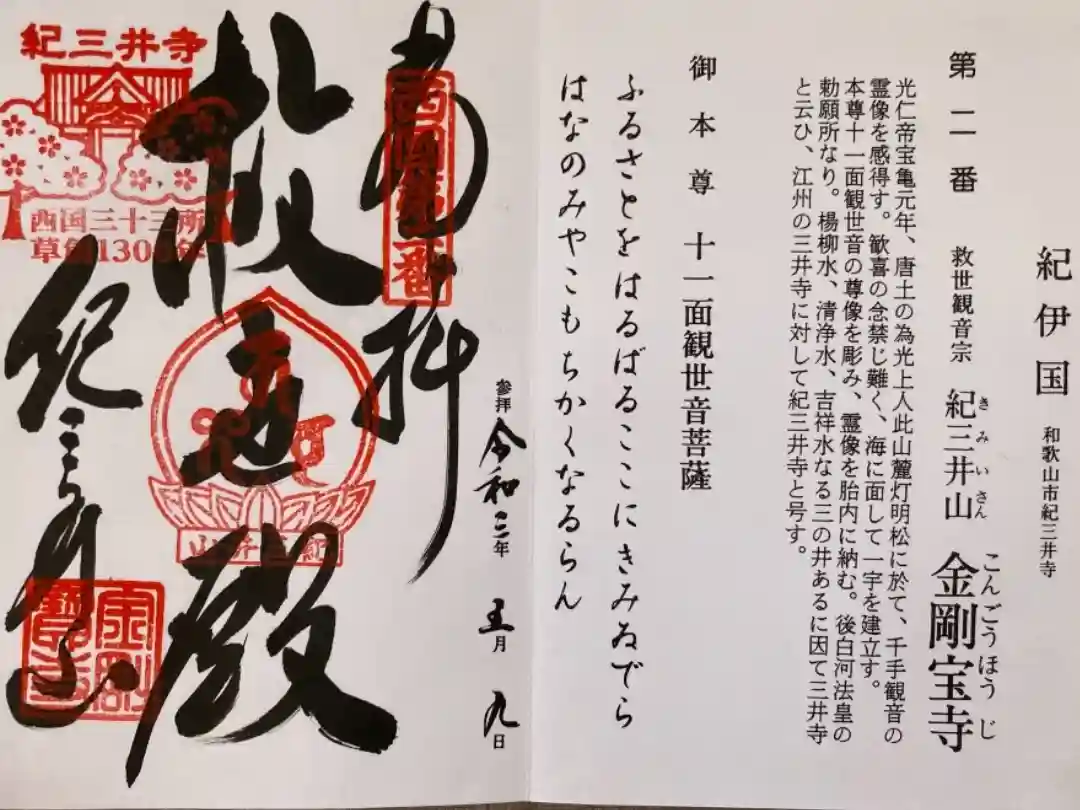 紀伊国 和歌山市紀三井寺
第二番 救世観音宗 紀三井山 金剛宝寺
きみいさん こんごうほうじ
光仁帝宝亀元年、唐土の為光上人此山麓灯明松に於て、千手観音の
霊像を感得す。歓喜の念禁じ難く、海に面して一宇を建立す。
本尊十一面観世音の尊像を彫み、霊像を胎内に納む。後白河法皇の
勅願所なり。楊柳水、清浄水、吉祥水なる三の井あるに因て三井寺
と云ひ、江州の三井寺に対して紀三井寺と号す。
御本尊 十一面観世音菩薩
ふるさとをはるばるここにきみゐでら
はなのみやこもちかくなるらん
参拝 令和三年 五月 九日
奉拝
西国第二番
救世殿
紀三井山
紀三井寺
紀三井寺
西国三十三所
草創1300年
金剛宝寺